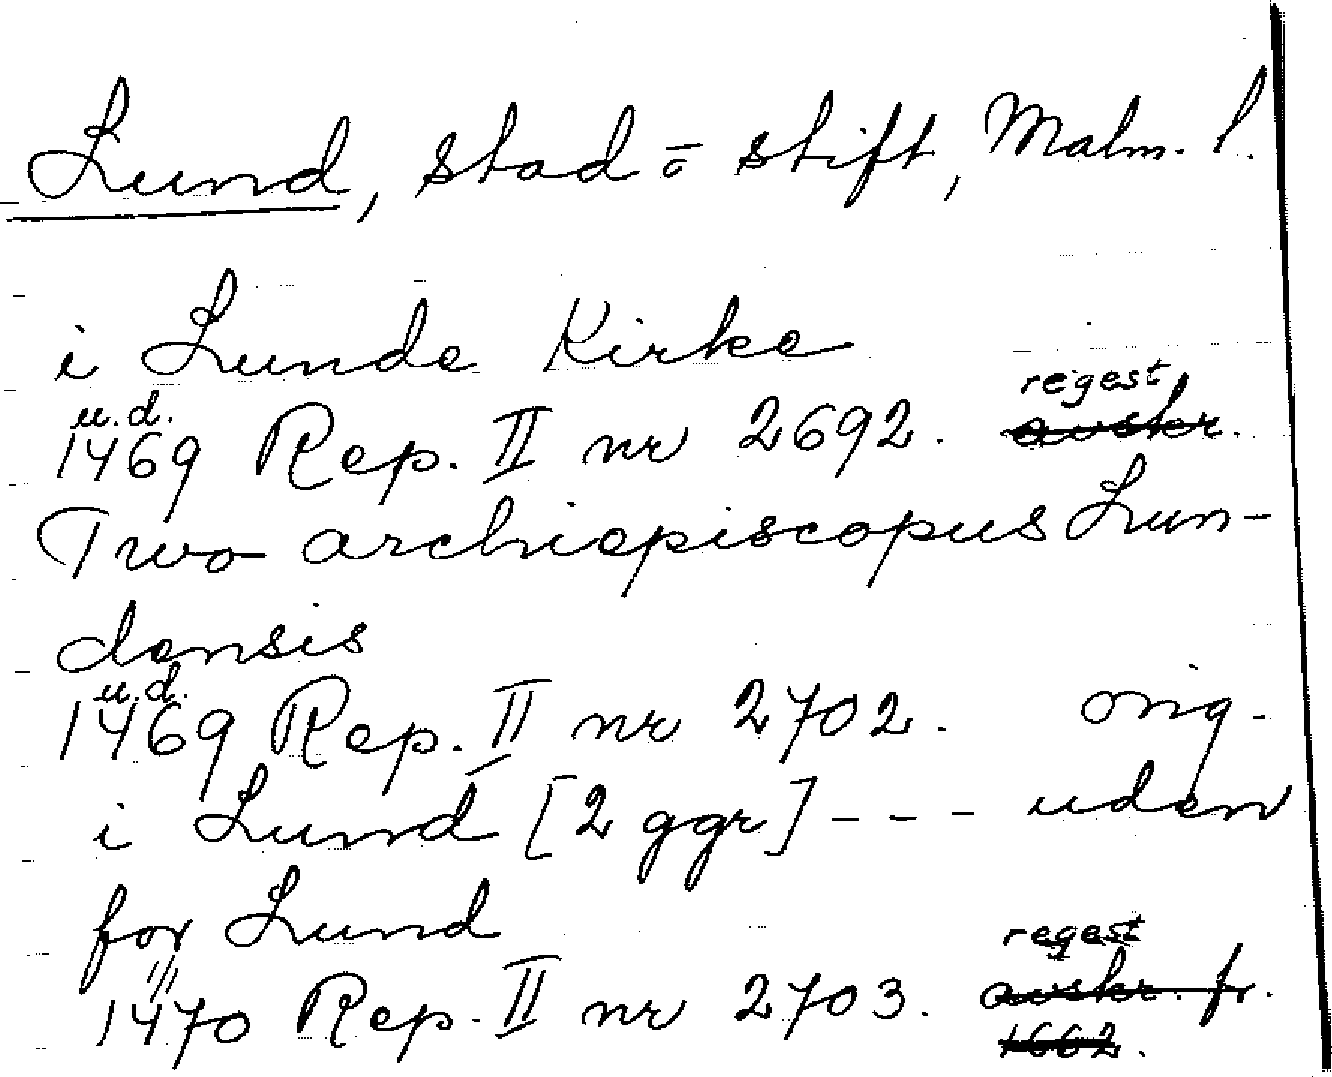 Lund, stad ō stift, Malm. l.
i Lunde Kirke
u.d. regest
1469 Rep. II nr 2692. avskr.
Two archiepiscopus Lun-
densis
u.d.
1469 Rep. II nr 2702. orig.
i Lund [2 ggr] - - - uden
for Lund
regest
1470 Rep. II nr 2703. avskr. fr.
1662.